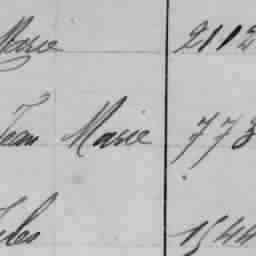 Marie 2112
Jean Marie 773
Jules 1544